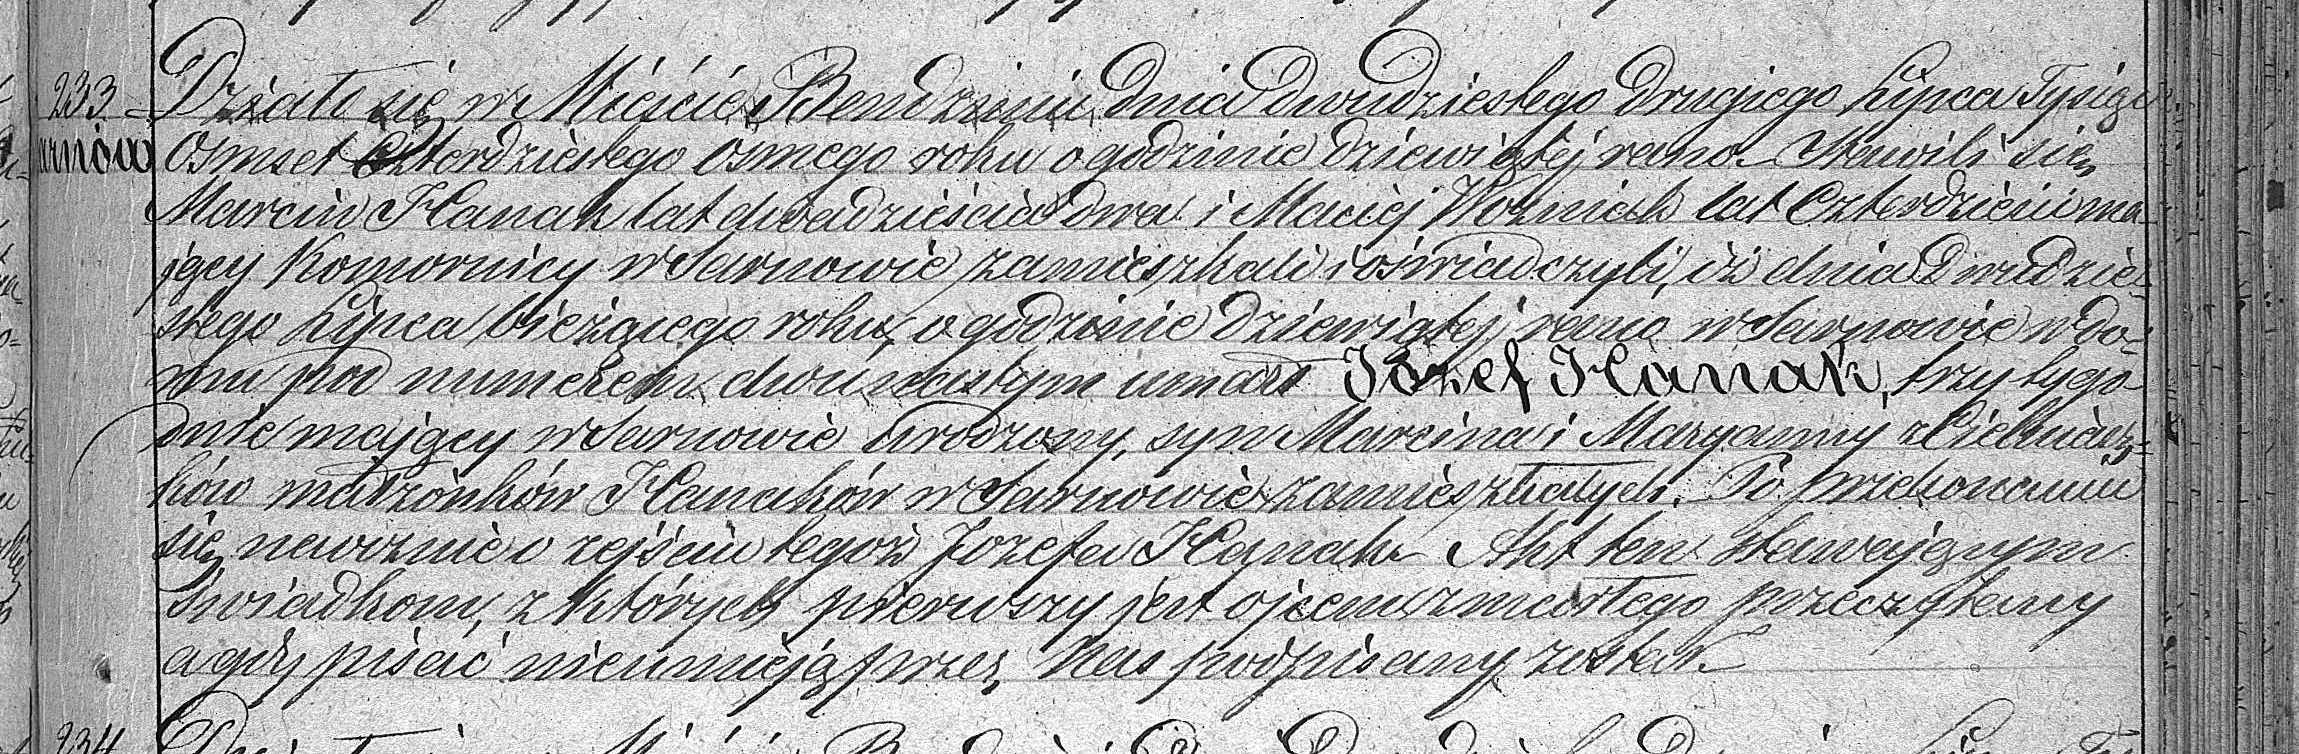 233
Działo się w Mieście Bendzinie dnia dwudziestego drugiego Lipca Tysiąc
arnów
Osmset Czterdziestego Osmego roku o godzinie dziewiątej rano. Stawili się
Marcin Hanak lat dwadzieścia dwa i Maciej Woźniak lat Czterdzieści ma-
jący Komornicy w Sarnowie zamieszkali i oświadczyli, iż dnia Dwudzie-
stego Lipca bieżącego roku, o godzinie dziewiątej rano w Sarnowie w do-
mu pod numerem dwunastym umarł Józef Hanak, trzy tygo-
dnie mający w Sarnowie urodzony, syn Marcina i Maryanny z
ków małżonków Hanaków w Sarnowie zamieszkałych. Po przekonaniu
się naocznie o zejściu tegoż Jozefa Hanak Akt ten stawającym
świadkom, z których pierwszy jest ojcem zmarłego przeczytany
a gdy pisać nieumieją przez Nas podpisany został
234